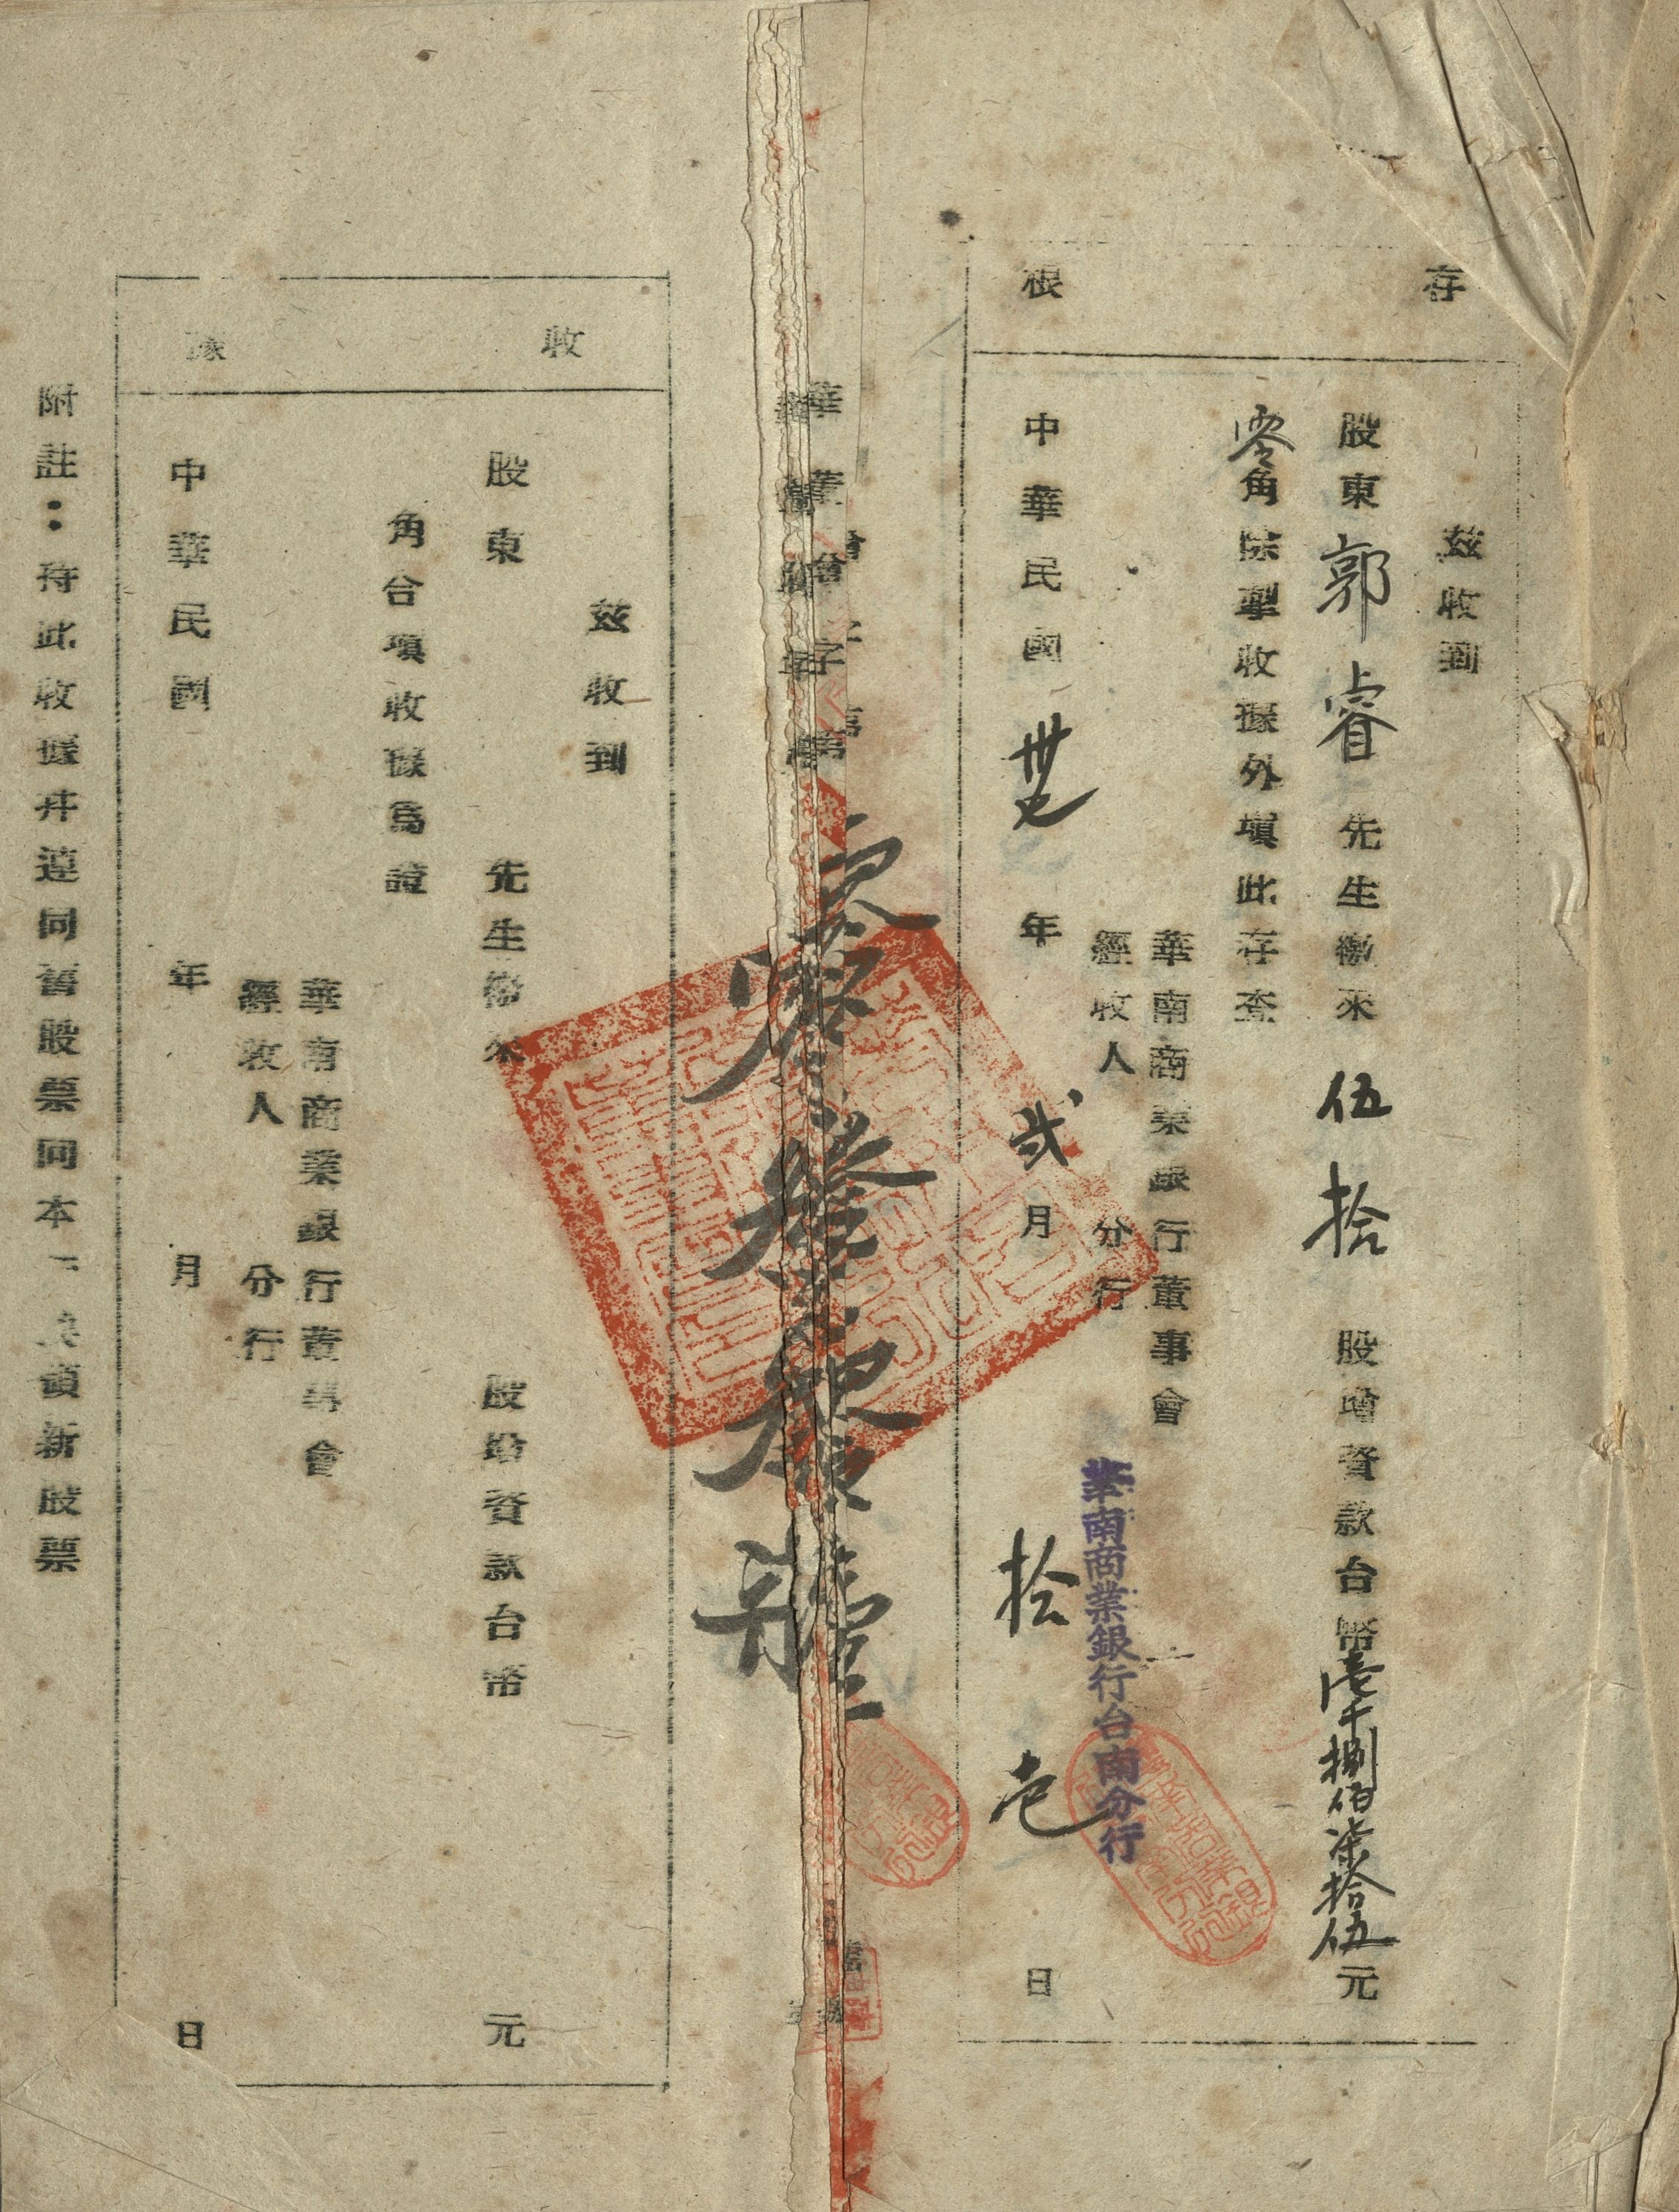 存根
茲收到
股東郭睿先生繳來伍拾股增資款台幣壹千捌佰柒拾伍元
零角除掣收據外填此存查
華南商業銀行董事會
經收人 分行
華南商業銀行台南分行
中華民國卅七年弍月拾壱日
收據
茲收到
股東 先生繳來 股增資款台幣 元
角合填收據爲證
華南商業銀行董事會
經收人 分行
中華民國 年 月 日
附註：待此收據并連同舊股票向本 領新股票